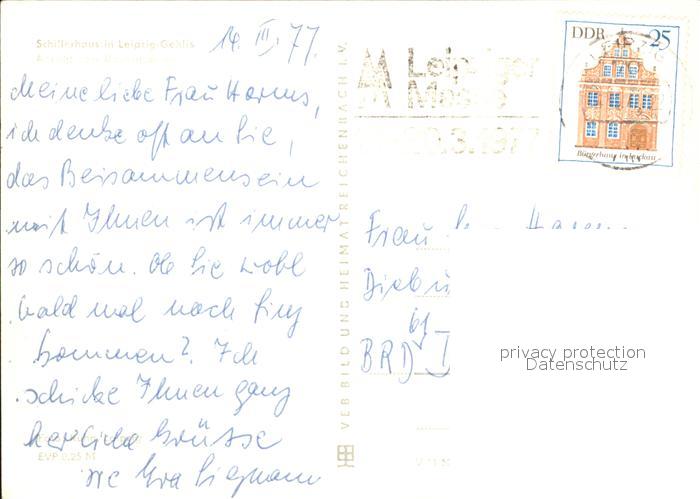 Schillerhaus in Leipzig-Gohlis
14. III. 77.
Meine liebe Frau Harms,
ich denke oft an Sie,
das Beisammensein
mit Ihnen ist immer
so schön. Ob Sie wohl
bald mal nach
kommen? Ich
schicke Ihnen ganz
herzliche Grüsse
Ihre Eva
EVP 0,25 M
VEB BILDUNG HEIMAT REICHENBACH I. V.
Leipziger
Messe
.3.1977
DDR 25
Bürgerhaus in Luckau
Frau
BRD
privacy protection
Datenschutz